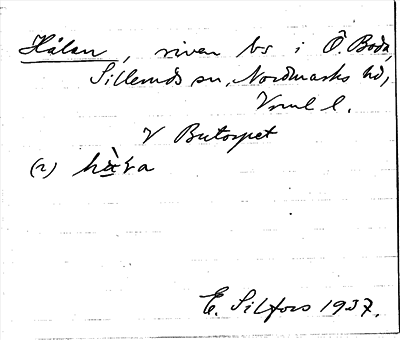 Hålan, riven bs i Ö. Boda,
Silleruds sn, Nordmarks hd,
Vrml l.
V Butorpet
(2) hàɩa
E. Silfors 1937.